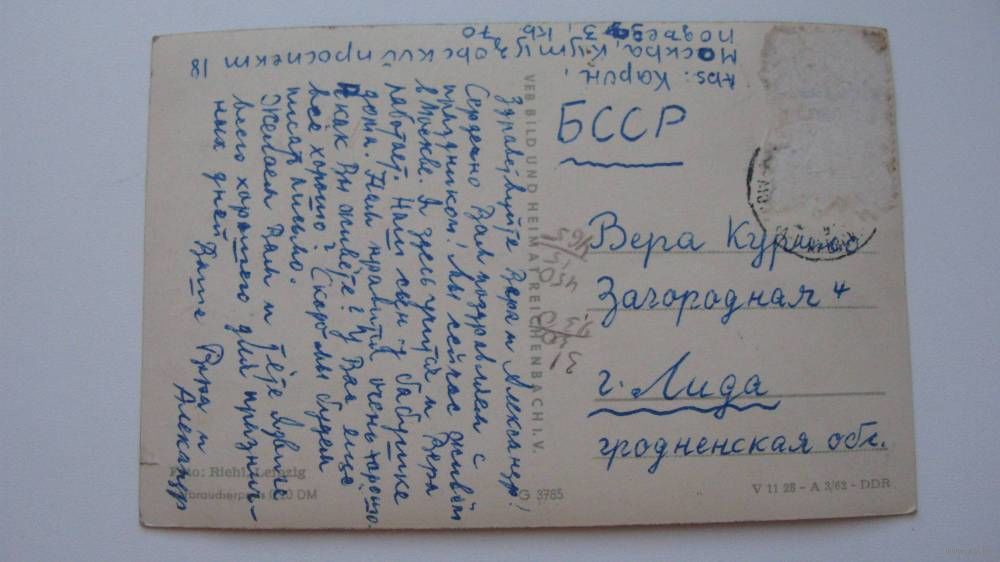 Abs: Карин,
Москва, Кутузовский проспект 18
подъезд 3, кв 70
БССР
Вера
Загородная 4
г. Лида
гродненская обл.
Здравствуйте Вера и Александр!
Сердечно Вам поздравляем с
праздником! Мы сейчас живём
в Москве. Я здесь учится и Вера
работает. Наш сын у бабушке
дома. Нам нравится очень хорошо.
А как Вы живёте? У Вас еще
всё хорошо? Скоро мы будем
писать письмо.
Желаем Вам и тёте
всего хорошего для празднич-
ных дней Ваше Вера и
Александр
VEB BILD UND HEIMAT REICHENBACH I. V.
Foto: Riehl, Leipzig
0,20 DM
G 3785
V 11 28 - A 3/62 - DDR